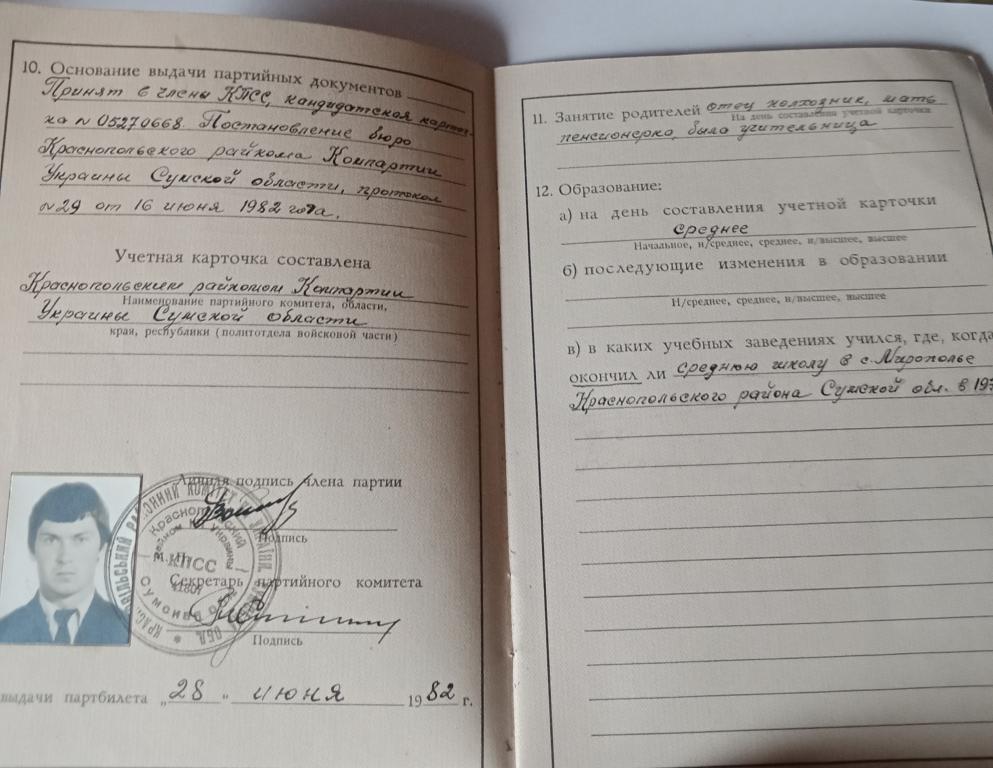 10. Основание выдачи партийных документов
Принят в члены КПСС, кандидатская карточ-
ка № 05270668. Постановление бюро
Краснопольского райкома Компартии
Украины Сумской области, протокол
№ 29 от 16 июня 1982 года.
Учетная карточка составлена
Краснопольским райкомом Компартии
Наименование партийного комитета, области,
Украины Сумской области
края, республики (политотдела войсковой части)
Личная подпись члена партии
Подпись
М. П.
КПСС
Секретарь партийного комитета
Подпись
выдачи партбилета „28 " июня 1982 г.
11. Занятие родителей отец колхозник, мать
На день составления учетной карточки
пенсионерка, была учительница
12. Образование:
а) на день составления учетной карточки
среднее
Начальное, н/среднее, среднее, н/высшее, высшее
б) последующие изменения в образовании
Н/среднее, среднее, н/высшее, высшее
в) в каких учебных заведениях учился, где, когда
окончил ли среднюю школу в с. Мирополье
Краснопольского района Сумской обл. в 197